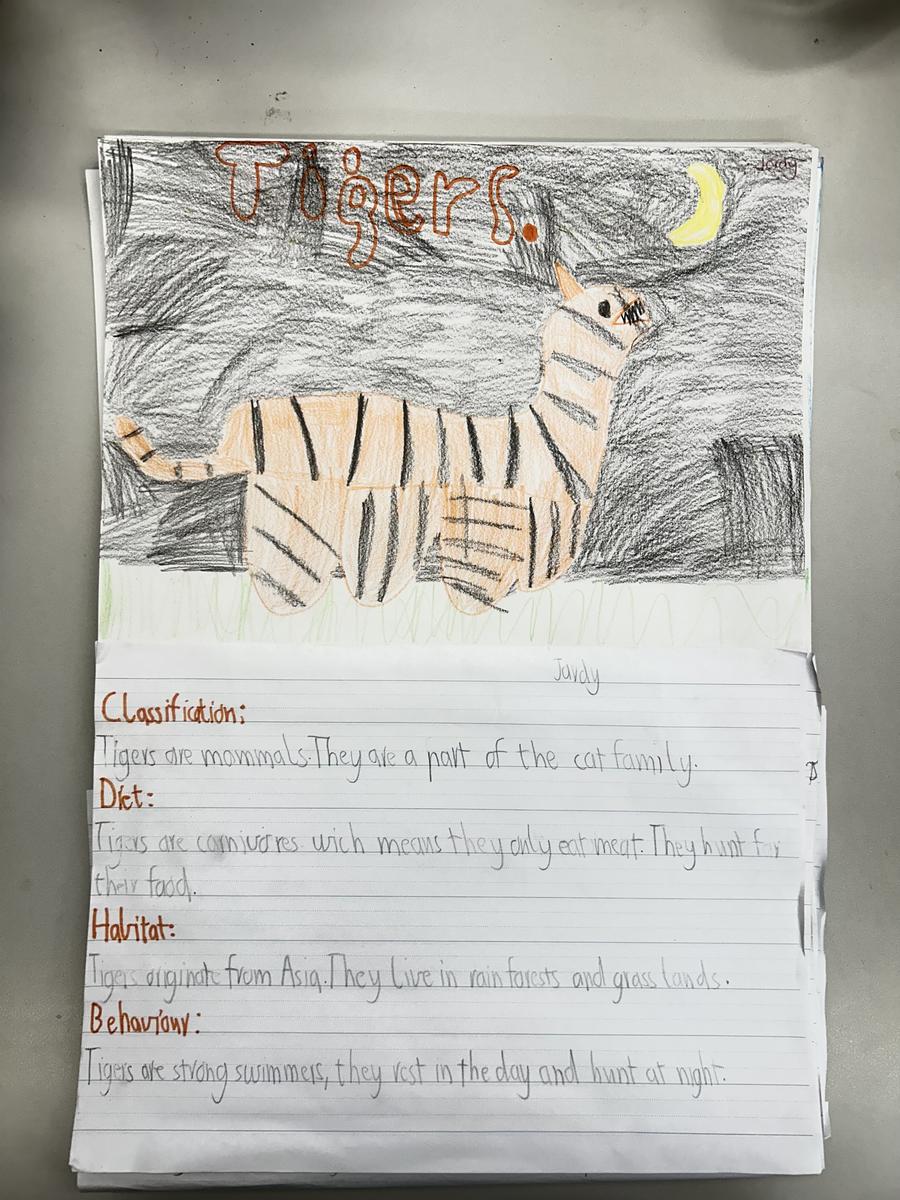 Tigers.
Jardy
Jardy
Classification:
Tigers are mammals. They are a part of the cat family.
Diet:
Tigers are carnivores wich means they only eat meat. They hunt for
their food.
Habitat:
Tigers originate from Asia. They live in rainforests and grass lands.
Behaviour:
Tigers are strong swimmers, they rest in the day and hunt at night.